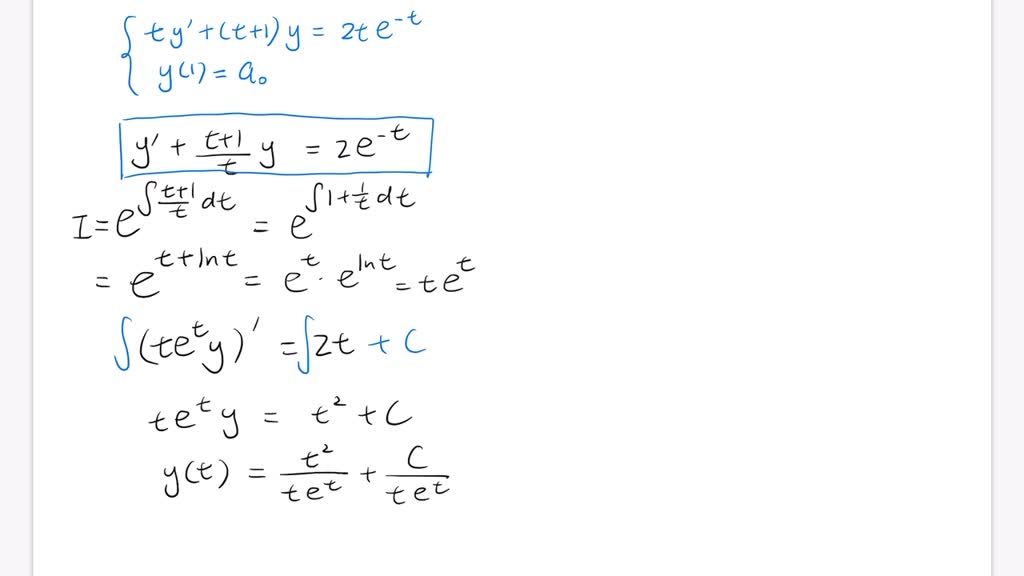 { ty' + (t+1)y = 2te^{-t}
y(1) = a₀
y' + \frac{t+1}{t} y = 2e^{-t}
I = e^{∫\frac{t+1}{t} dt} = e^{∫1+\frac{1}{t} dt}
= e^{t+lnt} = e^{t} · e^{lnt} = te^{t}
∫(te^{t}y)' = ∫2t + C
te^{t}y = t² + C
y(t) = \frac{t²}{te^{t}} + \frac{C}{te^{t}}